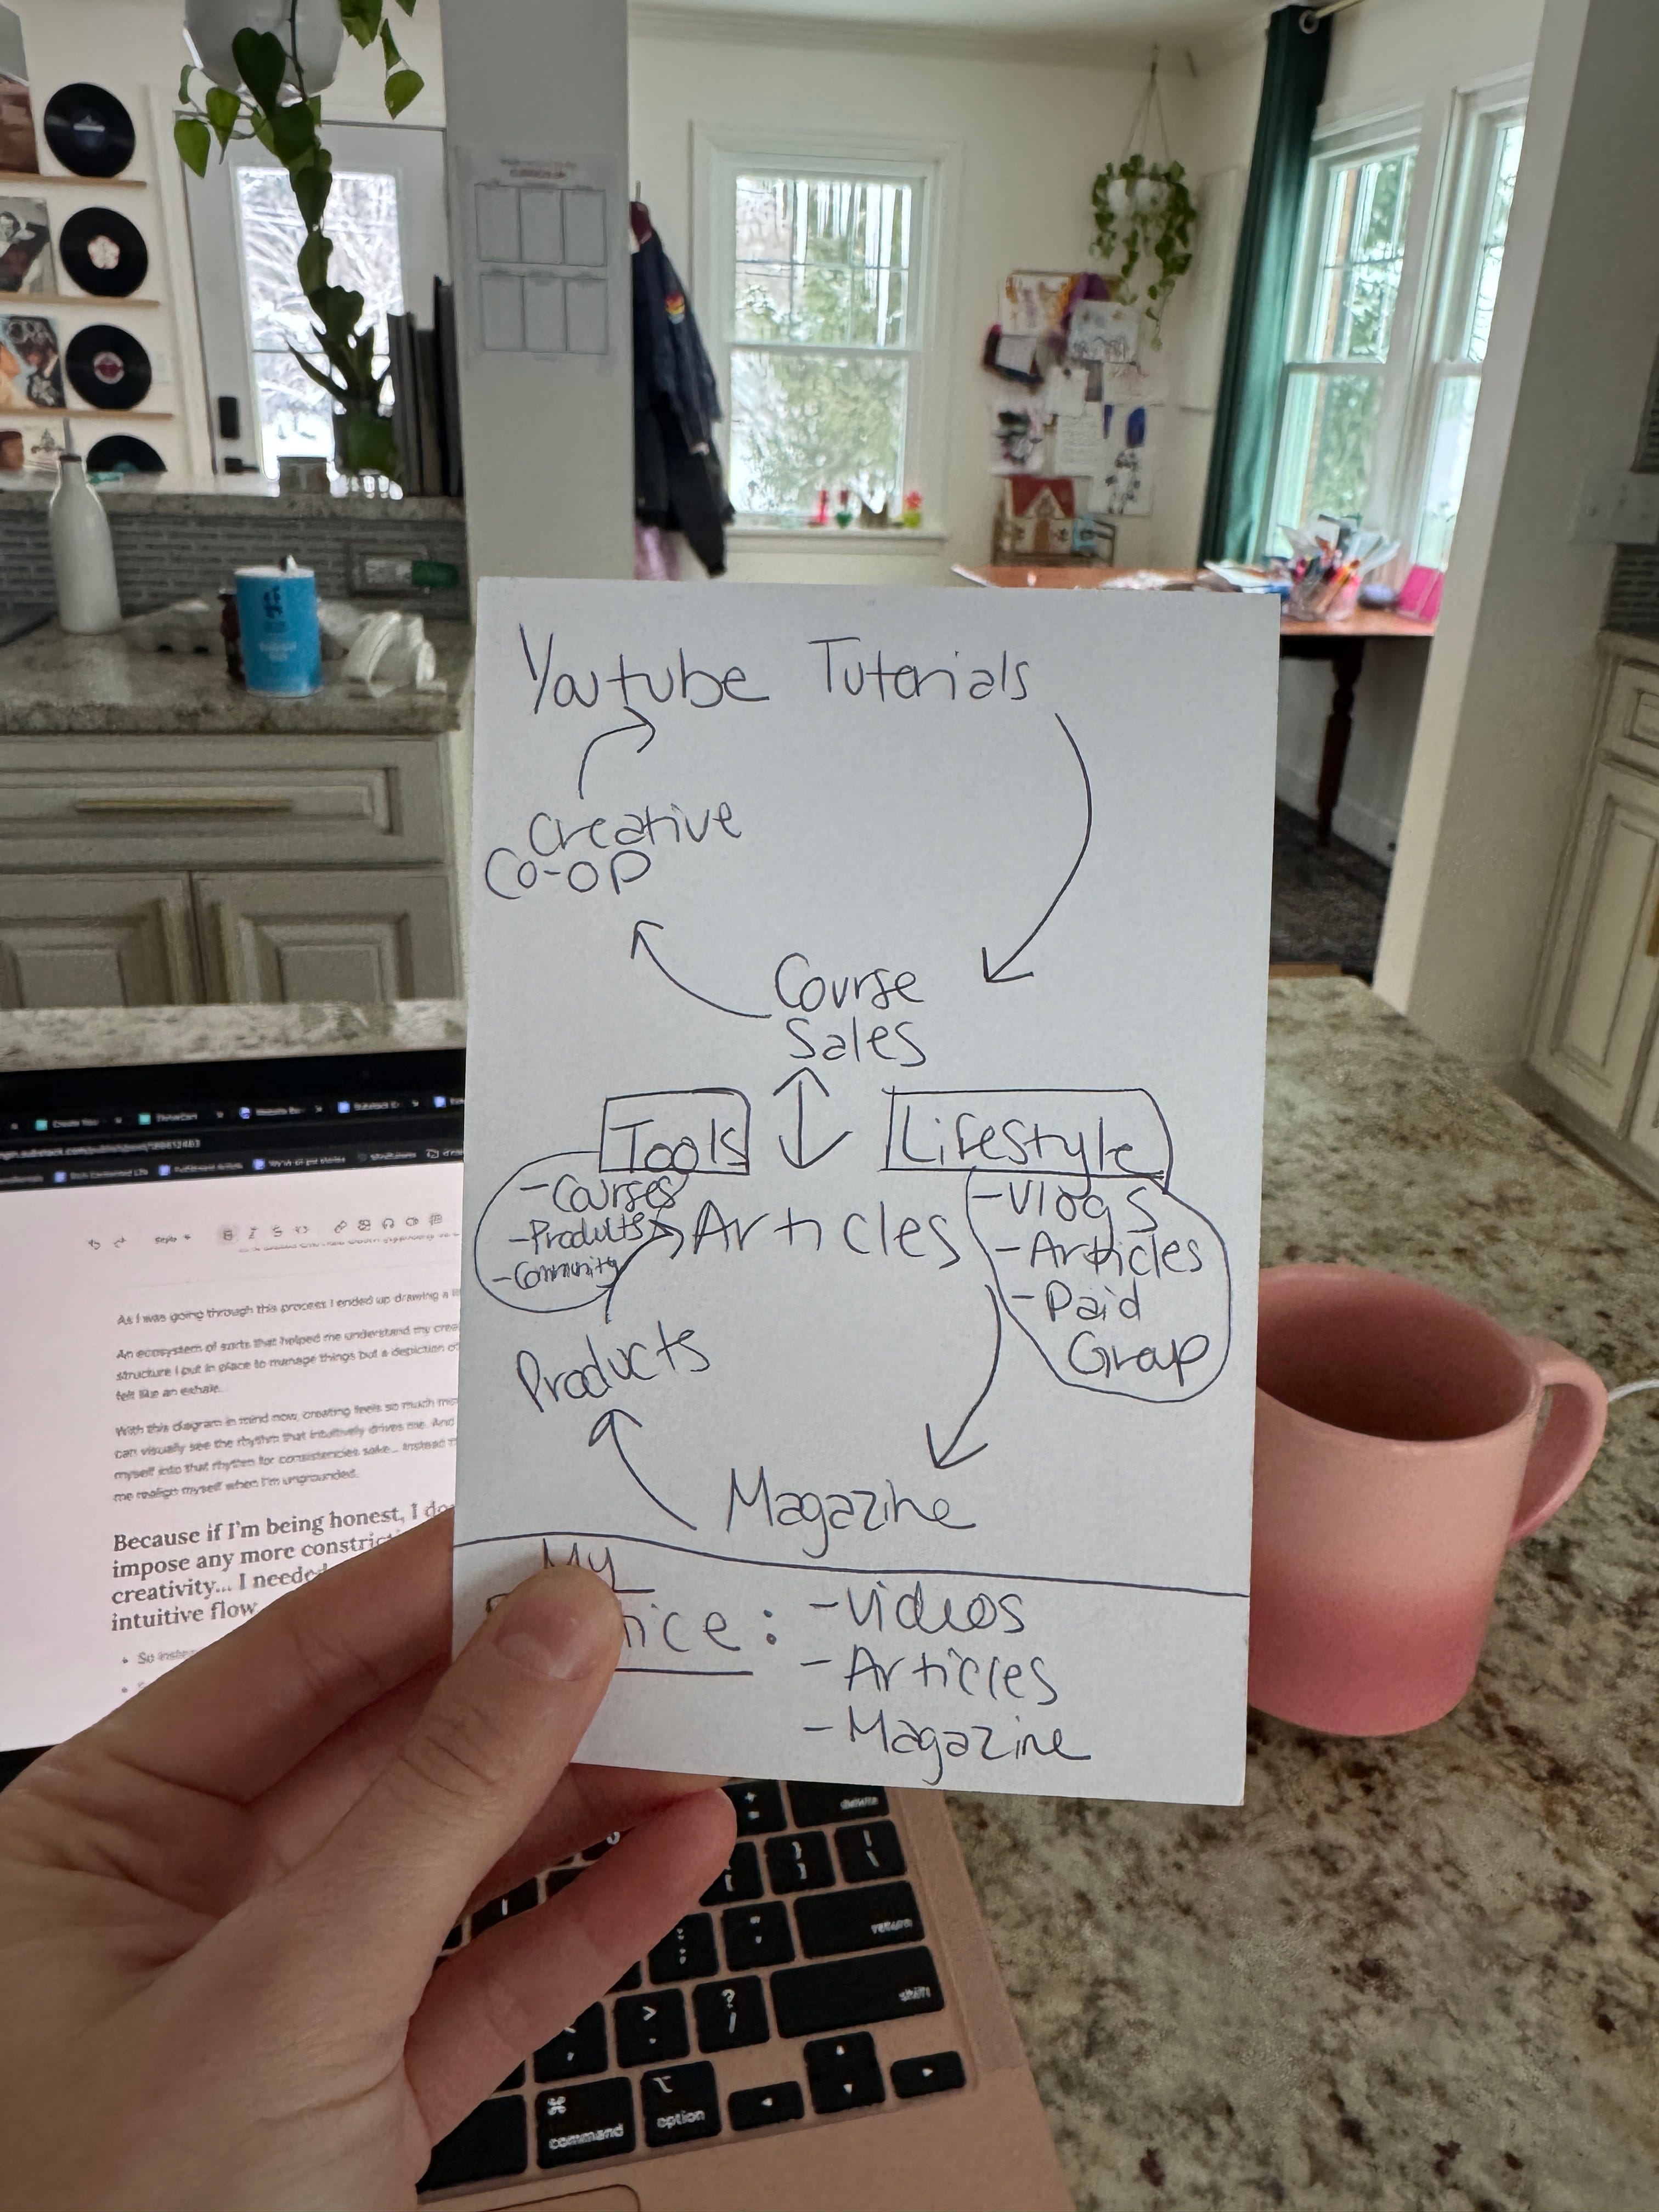 Youtube Tutorials
Creative
Co-op
Course
Sales
Tools
- Courses
- Products
- Community
Lifestyle
- Vlogs
- Articles
- Paid
Group
Articles
Products
Magazine
My
: - Videos
- Articles
- Magazine
As I was going through this process I ended up drawing a
An ecosystem of sorts that helped me understand my
structure I put in place to manage things but a depiction of
felt like an exhale.
With this diagram in mind now, creating feels so much
can visually see the rhythm that intuitively drives me. And
myself into that rhythm for consistencies sake... instead
me realign myself when I'm ungrounded.
Because if I'm being honest, I
impose any more
creativity... I needed
intuitive flow
delete
return
shift
command
option